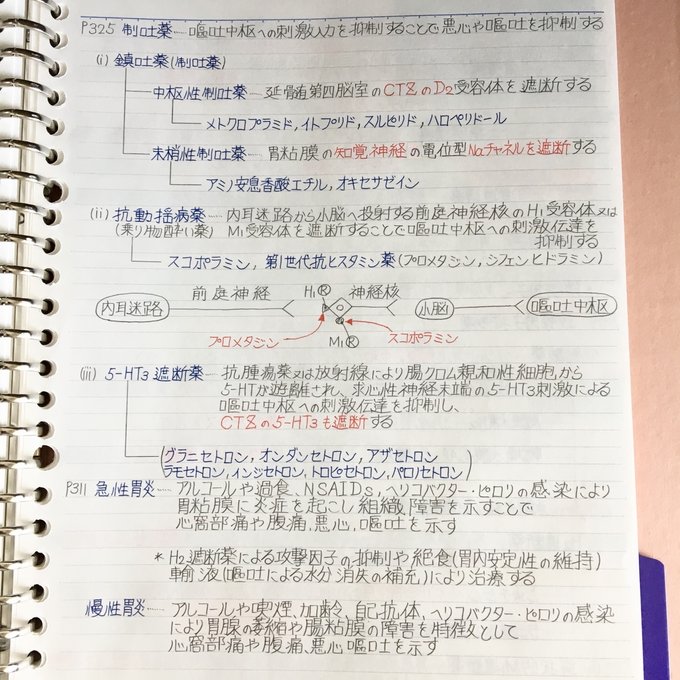 P325 制吐薬…… 嘔吐中枢への刺激入力を抑制することで悪心や嘔吐を抑制する
(i) 鎮吐薬(制吐薬)
中枢性制吐薬…… 延髄第四脳室のCTZのD2受容体を遮断する
メトクロプラミド,イトプリド,スルピリド,ハロペリドール
末梢性制吐薬…… 胃粘膜の知覚神経の電位型Naチャネルを遮断する
アミノ安息香酸エチル,オキセサゼイン
(ii) 抗動揺病薬…… 内耳迷路から小脳へ投射する前庭神経核のH1受容体又は
(乗り物酔い薬) M1受容体を遮断することで嘔吐中枢への刺激伝達を
抑制する
スコポラミン,第1世代抗ヒスタミン薬(プロメタジン,ジフェンヒドラミン)
内耳迷路 前庭神経 H1Ⓡ 神経核 小脳 嘔吐中枢
プロメタジン M1Ⓡ スコポラミン
(iii) 5-HT3遮断薬…… 抗腫瘍薬又は放射線により腸クロム親和性細胞から
5-HTが遊離され、求心性神経末端の5-HT3刺激による
嘔吐中枢への刺激伝達を抑制し、
CTZの5-HT3も遮断する
(グラニセトロン,オンダンセトロン,アザセトロン
ラモセトロン,インジセトロン,トロピセトロン,パロノセトロン)
P311 急性胃炎…… アルコールや過食、NSAIDs,ヘリコバクター・ピロリの感染により
胃粘膜に炎症を起こし組織障害を示すことで
心窩部痛や腹痛,悪心,嘔吐を示す
* H2遮断薬による攻撃因子の抑制や絶食(胃内安定性の維持)
輸液(嘔吐による水分消失の補充)により治療する
慢性胃炎…… アルコールや喫煙,加齢,自己抗体,ヘリコバクター・ピロリの感染
により胃腺の萎縮や腸粘膜の障害を特徴として
心窩部痛や腹痛、悪心嘔吐を示す